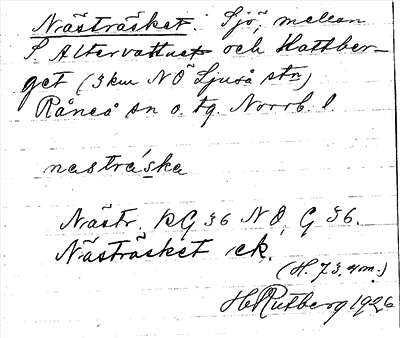 Nästräsket. Sjö, mellan
S. Altervattnet och Hattber-
get (3 km NÖ Ljuså stn)
Råneå sn o. tg. Norrb. l.
nastráska
Nästr. RG 36 NO, G 36.
Nästräsket ek.
(H. 73.
H. Rutberg 1926